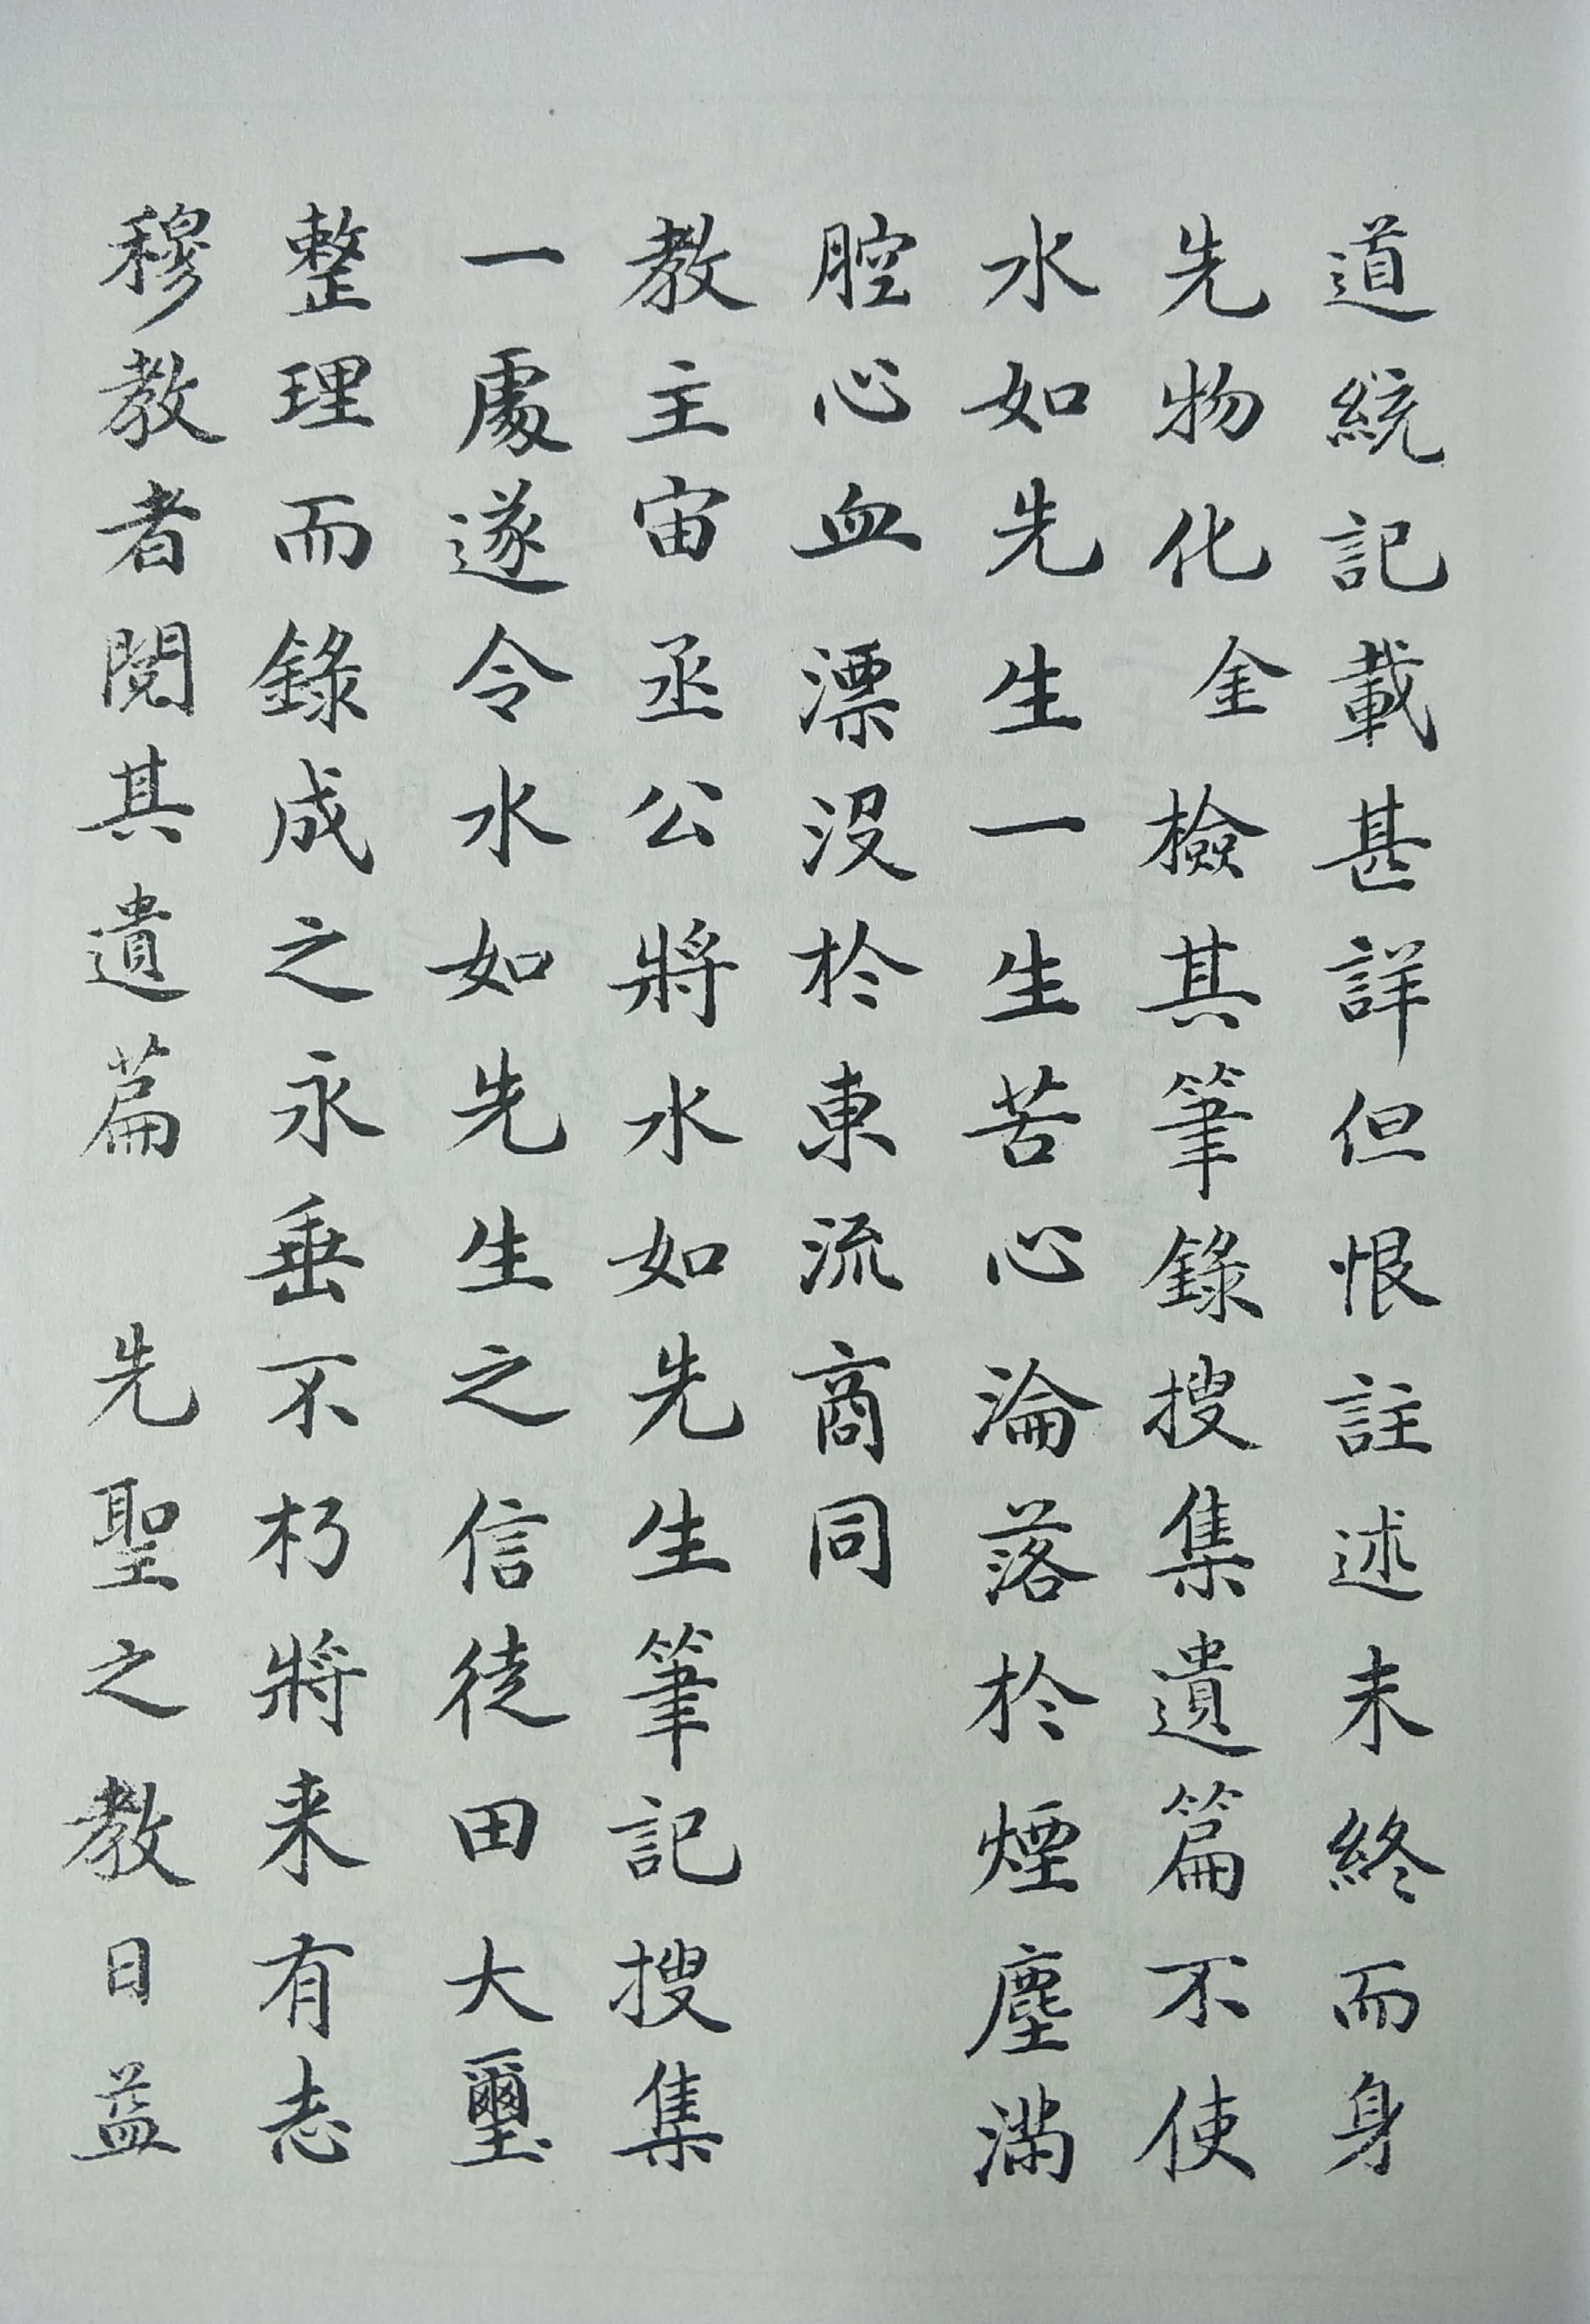 道統記載甚詳但恨註述未終而身
先物化金檢其筆錄搜集遺篇不使
水如先生一生苦心淪落於煙塵滿
腔心血漂沒於東流商同
教主宙丞公將水如先生筆記搜集
一處遂令水如先生之信徒田大璽
整理而錄成之永垂不朽將来有志
穆教者閱其遺篇　先聖之教日益